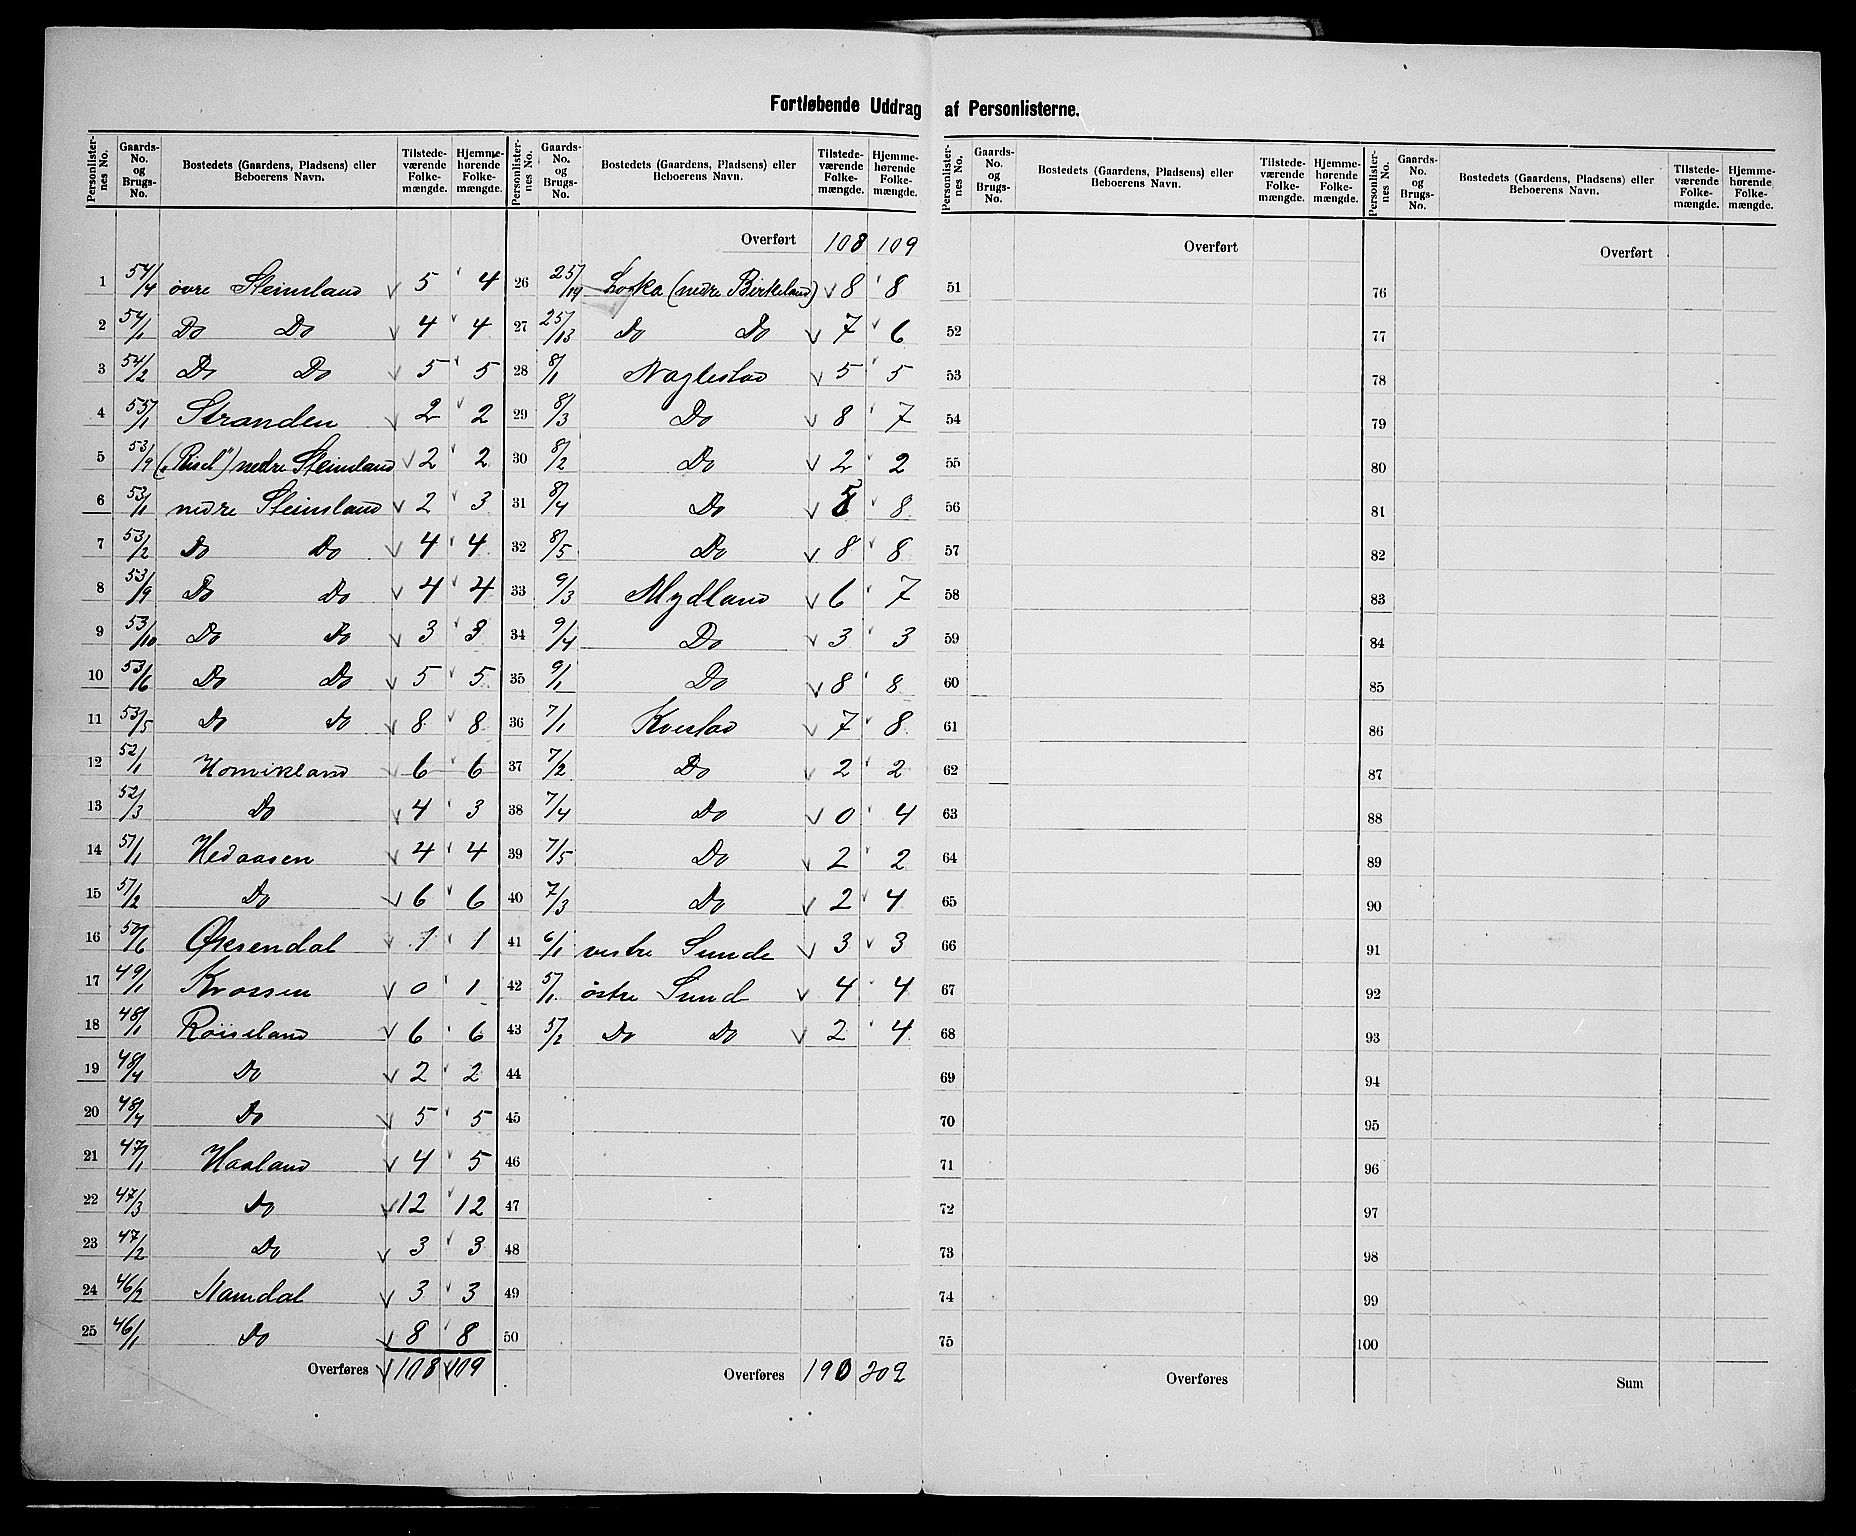 Fortløbende Uddrag af Personlisterne.
Personlisternes No. | Gaards-No. og Brugs-No. | Bostedets (Gaardens, Pladsens) eller Beboerens Navn. | Tilstedeværende Folkemængde. | Hjemmehørende Folkemængde.
1 54/4 øvre Steinsland 5 4
2 54/1 Do Do 4 4
3 54/2 Do Do 5 5
4 55/1 Stranden 2 2
5 53/9 („Risel") nedre Steinsland 2 2
6 53/1 nedre Steinsland 2 3
7 53/2 Do Do 4 4
8 53/9 Do Do 4 4
9 53/10 Do Do 3 3
10 53/6 Do Do 5 5
11 53/5 Do Do 8 8
12 52/1 Homikland 6 6
13 52/3 Do 4 3
14 51/1 Hedaasen 4 4
15 51/2 Do 6 6
16 50/6 Øksendal 1 1
17 49/1 Krossen 0 1
18 48/1 Røiseland 6 6
19 48/4 Do 2 2
20 48/4 Do 5 5
21 47/1 Haaland 4 5
22 47/3 Do 12 12
23 47/2 Do 3 3
24 46/2 Namdal 3 3
25 46/1 Do 8 8
Overføres 108 109
Personlisternes No. | Gaards-No. og Brugs-No. | Bostedets (Gaardens, Pladsens) eller Beboerens Navn. | Tilstedeværende Folkemængde. | Hjemmehørende Folkemængde.
Overført 108 109
26 25/14 Loska (nedre Birkeland) 8 8
27 25/13 Do Do 7 6
28 8/1 Naglestad 5 5
29 8/3 Do 8 7
30 8/2 Do 2 2
31 8/4 Do 5 8
32 8/5 Do 8 8
33 9/3 Mydland 6 7
34 9/4 Do 3 3
35 9/1 Do 8 8
36 7/1 Kvestad 7 8
37 7/2 Do 2 2
38 7/4 Do 0 4
39 7/5 Do 2 2
40 7/3 Do 2 4
41 6/1 vestre Sunde 3 3
42 5/1 østre Sund 4 4
43 5/2 Do Do 2 4
44
45
46
47
48
49
50
Overføres 190 202
Personlisternes No. | Gaards-No. og Brugs-No. | Bostedets (Gaardens, Pladsens) eller Beboerens Navn. | Tilstedeværende Folkemængde. | Hjemmehørende Folkemængde.
Overført
51
52
53
54
55
56
57
58
59
60
61
62
63
64
65
66
67
68
69
70
71
72
73
74
75
Overføres
Personlisternes No. | Gaards-No. og Brugs-No. | Bostedets (Gaardens, Pladsens) eller Beboerens Navn. | Tilstedeværende Folkemængde. | Hjemmehørende Folkemængde.
Overført
76
77
78
79
80
81
82
83
84
85
86
87
88
89
90
91
92
93
94
95
96
97
98
99
100
Sum